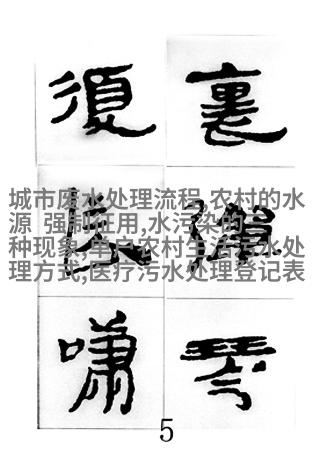 裏
彈
琴
復
長
嘯
城市废水处理流程,农村的水
源 强制征用,水污染的
种现象,单户农村生活污水处
理方式,医疗污水处理登记表
5